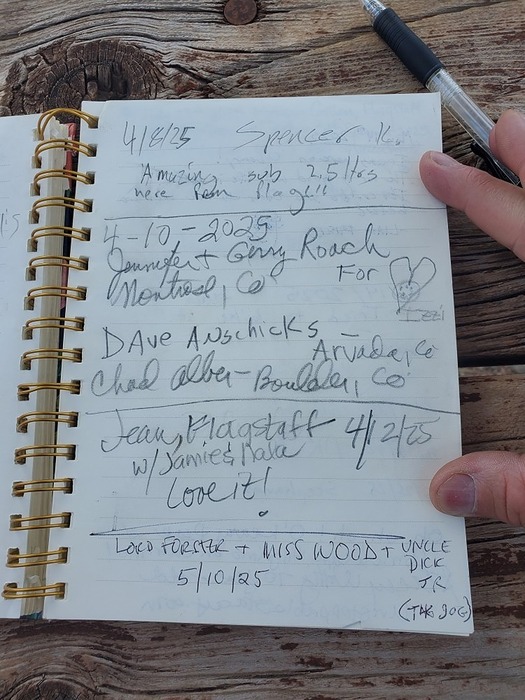 4/8/25 Spencer K.
Amazing sub 2.5 hrs
here from flag!!
4-10-2025
Jennifer + Gerry Roach
Montrose, Co For
Lezzi
Dave Anschicks -
Arvada, Co
Chad Alber - Boulder, Co
Jean, Flagstaff 4/12/25
w/ Jamie &
Love it!
LORD FORSTER + MISS WOOD + UNCLE
DICK
5/10/25 JR
(THE DOG)